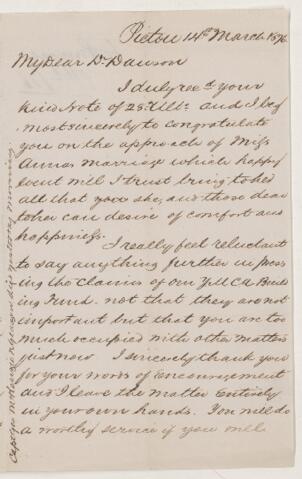 Pictou 14th March 1876
My Dear Dr Dawson
I duly recd your
kind Note of 28th Ulto and I beg
most sincerely to congratulate
you on the approach of Miss
Annas marriage which happy
event will I trust bring to her
all that you she, and those dear
to her can desire of comfort and
happiness.
I really feel reluctant
to say anything further in press
ing the claims of our YMCA Build
ing Fund. not that they are not
important but that you are too
much occupied with other matters
just now I sincerely thank you
for your words of encouragement
and I leave the matter Entirely
in your own hands. You will do
a worthy service if you will
yesterday morning